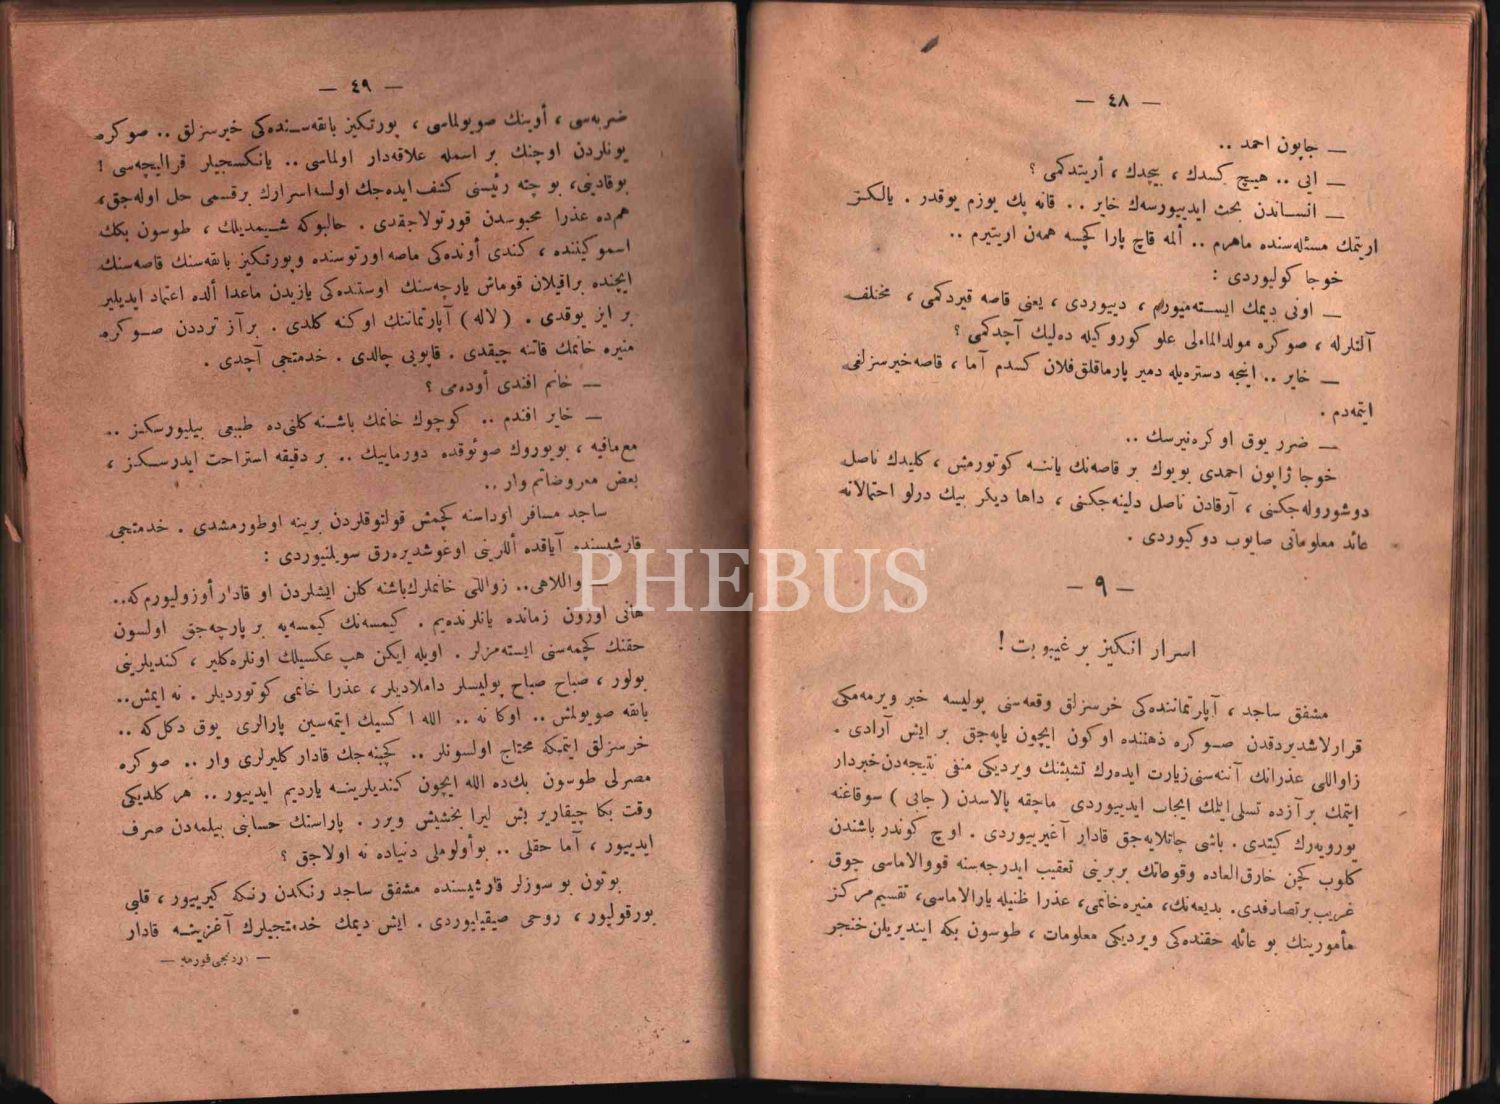 — ٤٨ —
— جاپون احمد ..
— ایی .. هیچ كسدك ، بیچدك ، أریتدكمی ؟
— انساندن بحث ایدییورسه‌ك خایر .. قانه پك یوزم یوقدر . یالكز
اریتمك مسئله‌سنده ماهرم .. ألمه قاچ پارا كچسه همه‌ن اریتیرم ..
خوجا كولیوردی :
— اونی دیمك ایسته‌میورم ، دییوردی ، یعنی قاصه قیردكمی ، مختلف
آلتلرله ، صوكره مولدالماءلی علو كوروكیله ده‌لیك آچدكمی ؟
— خایر .. اینجه دستره‌یله دمیر پارماقلق فلان كسدم آما ، قاصه خیرسزلغی
ایتمه‌دم .
— ضرر یوق اوكره‌نیرسك ..
خوجا ژاپون احمدی بویوك بر قاصه‌نك یاننه كوتورمش ، كلیدك ناصل
دوشوروله‌جكنی ، آرقادن ناصل دلینه‌جكنی ، داها دیكر بیك درلو احتمالاته
عائد معلوماتی صایوب دوكیوردی .
— ٩ —
اسرار انكیز بر غیبوبت !
مشفق ساجد ، آپارتماننده‌كی خرسزلق وقعه‌سنی پولیسه خبر ویرمه‌مكی
قرارلاشدیردقدن صوكره ذهننده اوكون ایچون یاپه‌جق بر ایش آرادی .
زاواللی عذرانك آننه‌سنی زیارت ایده‌رك تشبثنك ویردیكی منفی نتیجه‌دن خبردار
ایتمك بر آزده تسلی ایتمك ایجاب ایدییوردی ماچقه پالاسدن ( جابی ) سوقاغنه
یورویه‌رك كیتدی . باشی چاتلایه‌جق قادار آغیرییوردی . اوچ كوندر باشندن
كلوب كچن خارق‌العاده وقوعاتك بربرینی تعقیب ایدرجه‌سنه قووالاماسی چوق
غریب بر تصادفدی . بدیعه‌نك ، منیره خانمی ، عذرا ظنیله یارالاماسی ، تقسیم مركز
مأمورینك بو عائله حقنده‌كی ویردیكی معلومات ، طوسون بكه ایندیریلن خنجر
— ٤٩ —
ضربه‌سی ، أوینك صویولماسی ، پورتكیز بانقه‌سنده‌كی خیرسزلق .. صوكره
بونلردن اوچنك بر اسمله علاقه‌دار اولماسی .. یانكسجیلر قرالیچه‌سی !
بوقادینی ، بو چته رئیسنی كشف ایده‌جك اولسه اسرارك بر قسمی حل اوله‌جق ،
هم‌ده عذرا محبوسدن قورتولاجقدی . حالبوكه شیمدیلك ، طوسون بكك
اسموكیننده ، كندی أونده‌كی ماصه اورتوسنده و پورتكیز بانقه‌سنك قاصه‌سنك
ایچنده براقیلان قوماش پارچه‌سنك اوستنده‌كی یازیدن ماعدا ألده اعتماد ایدیلیر
بر ایز یوقدی . ( لاله ) آپارتماننك اوكنه كلدی . بر آز ترددن صوكره
منیره خانمك قاتنه چیقدی . قاپویی چالدی . خدمتجی آچدی .
— خانم افندی أوده‌می ؟
— خایر افندم .. كوچوك خانمك باشنه كلنی ده طبیعی بیلیورسكز ..
مع‌مافیه ، بویوروك صوئوقده دورماییك .. بر دقیقه استراحت ایدرسكز ،
بعض معروضاتم وار ..
ساجد مسافر اوداسنه كچمش قولتوقلردن برینه اوطورمشدی . خدمتجی
قارشیسنده آیاقده أللرینی اوغوشدیره‌رق سویلنیوردی :
— واللاهی .. زواللی خانملرك باشنه كلن ایشلردن او قادار أوزولیورم كه..
هانی اوزون زمانده یانلرنده‌یم . كیمسه‌نك كیمسه‌یه بر پارچه‌جق اولسون
حقنك كچمه‌سنی ایسته‌مزلر . اویله ایكن هپ عكسیلك اونلره كلیر ، كندیلرینی
بولور ، صباح صباح پولیسلر داملادیلر ، عذرا خانمی كوتوردیلر . نه ایمش..
بانقه صویولمش .. اوكا نه .. الله اكسیك ایتمه‌سین پارالری یوق دكل كه ..
خرسزلق ایتمكه محتاج اولسونلر .. كچینه‌جك قادار كلیرلری وار .. صوكره
مصرلی طوسون بك‌ده الله ایچون كندیلرینه یاردیم ایدییور .. هر كلدیكی
وقت بكا چیقاریر بش لیرا بخشیش ویرر . پاراسنك حسابنی بیلمه‌دن صرف
ایدییور ، آما حقلی .. بو أولوملی دنیاده نه اولاجق ؟
بوتون بو سوزلر قارشیسنده مشفق ساجد رنكدن رنكه كیرییور ، قلبی
بورقولیور ، روحی صیقیلیوردی . ایش دیمك خدمتجیلرك آغزینه قادار
PHEBUS